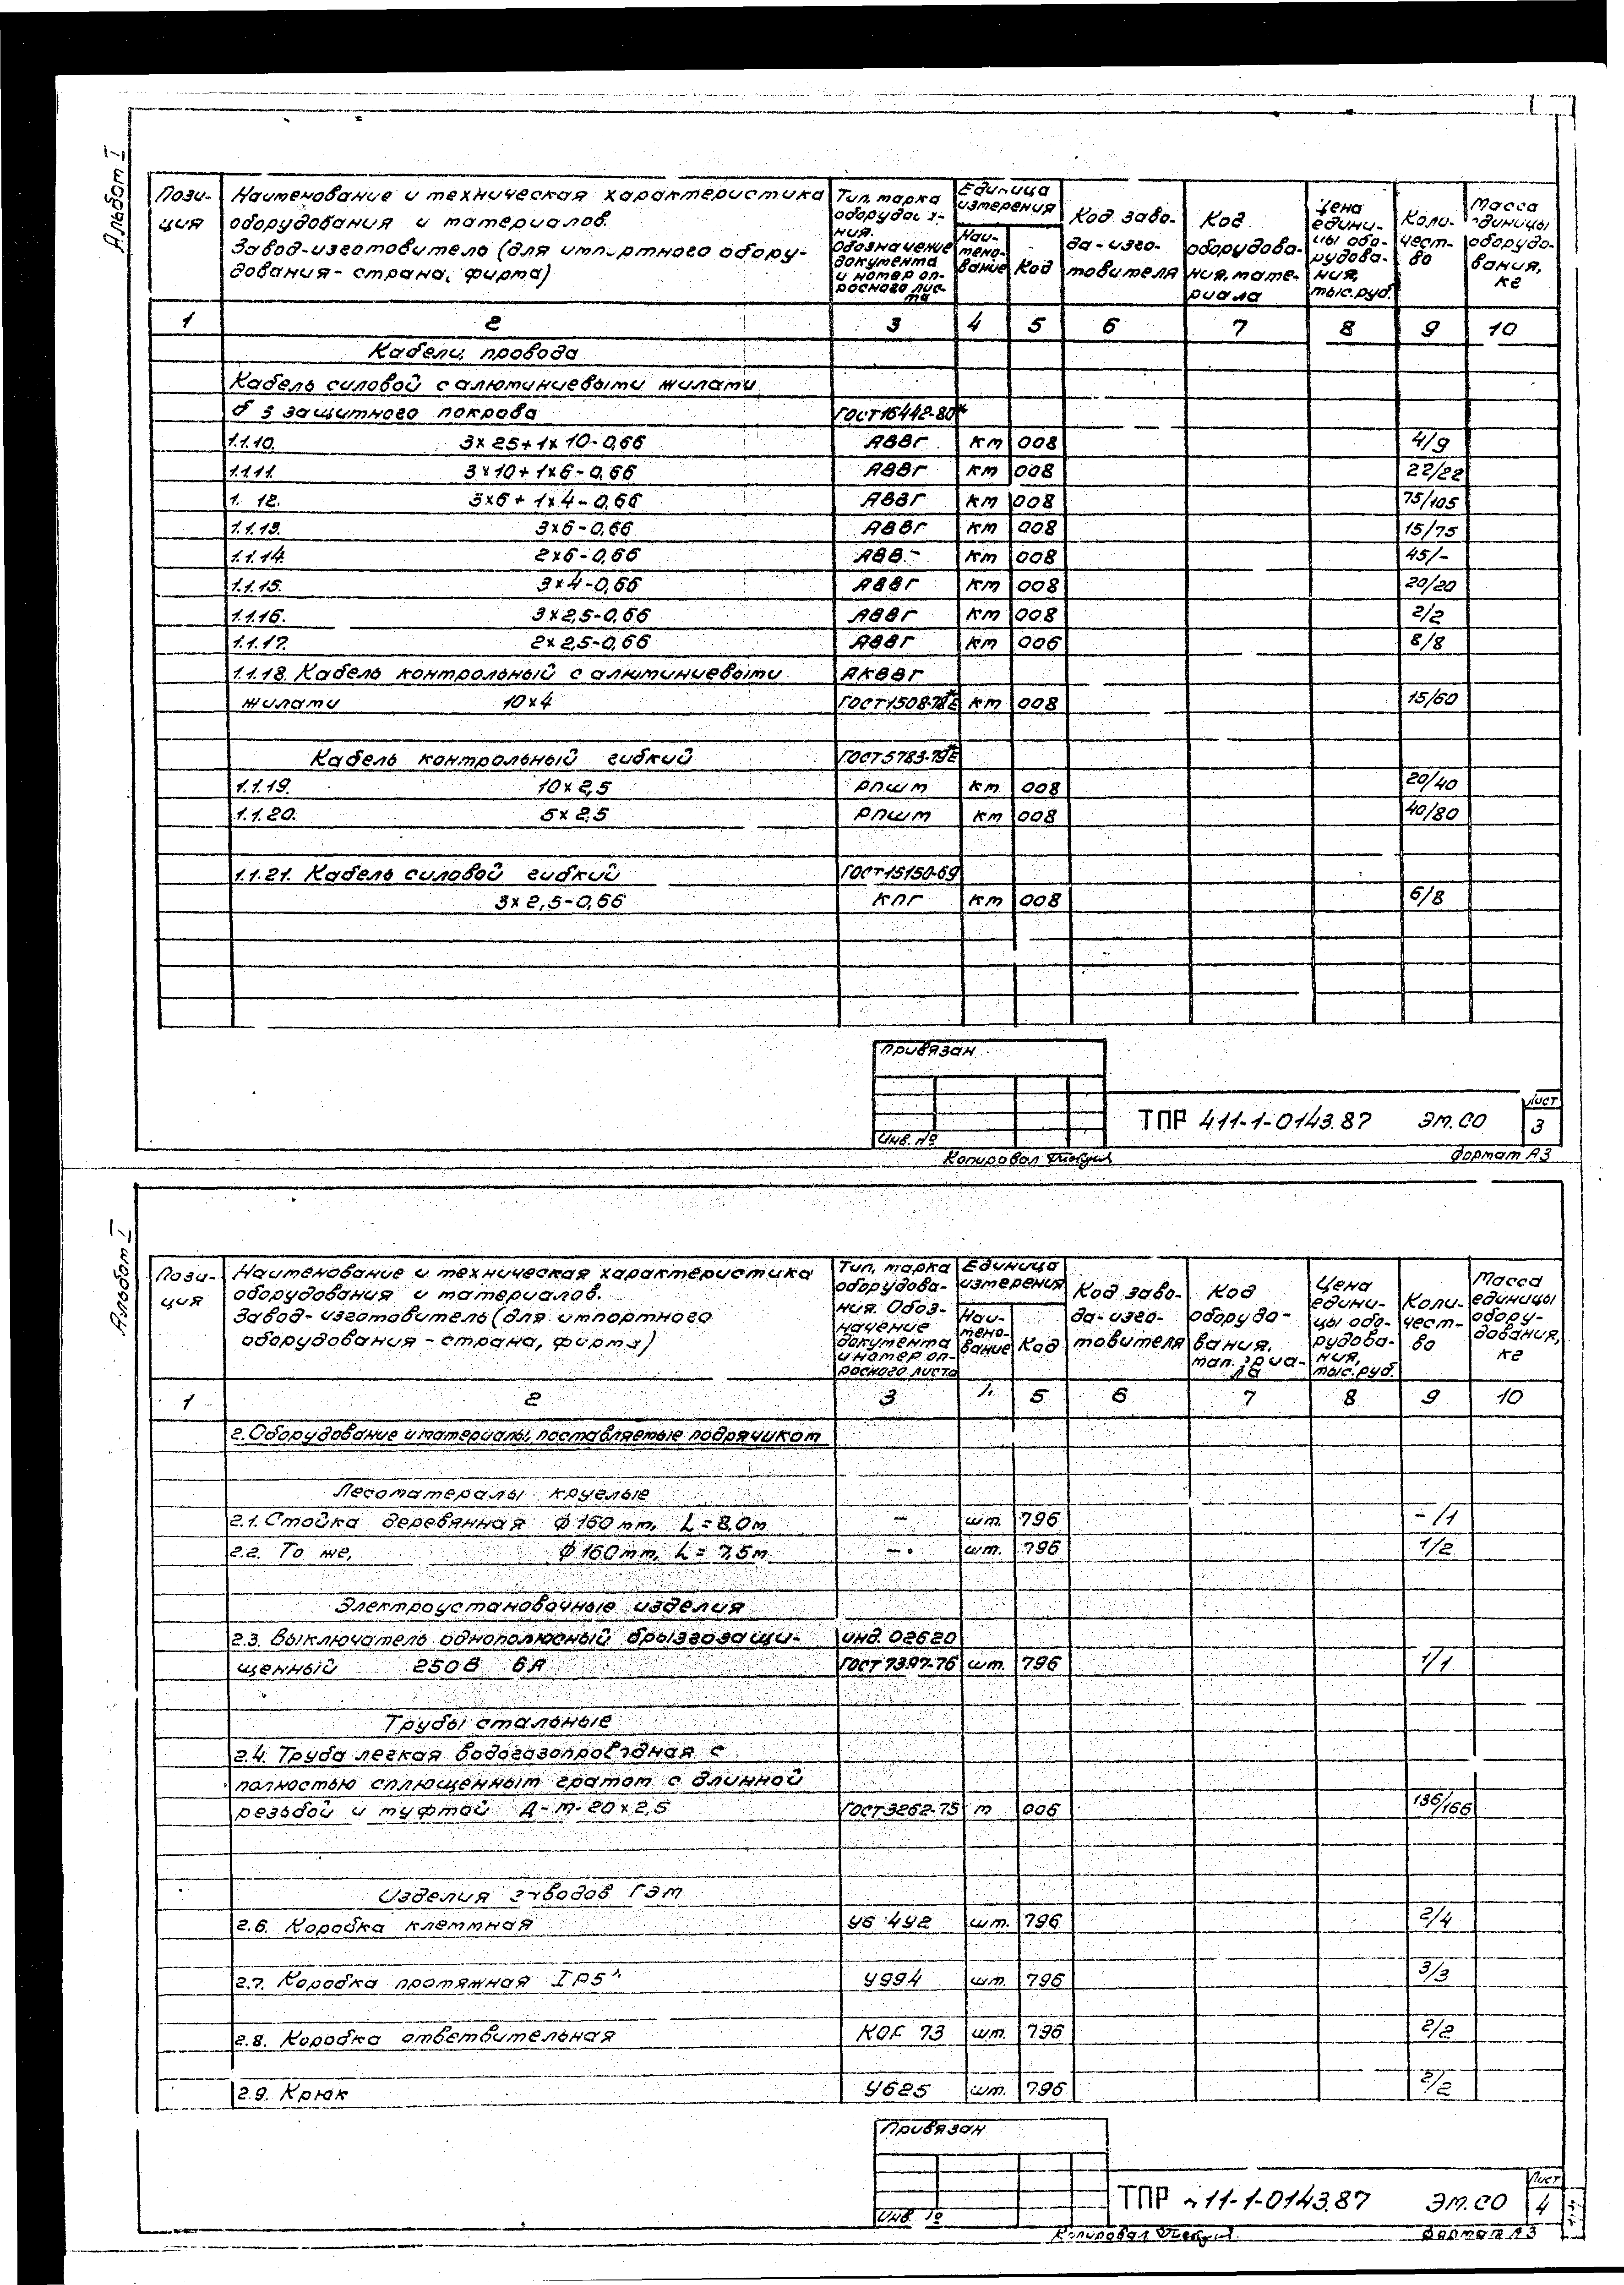 Альбом I
Пози-ция | Наименование и техническая характеристика оборудования и материалов. Завод-изготовитель (для имп.ртного обору-дования- страна, фирма) | Тип, марка оборудов х-ния. Обозначение документа и номер оп-росного лис-та | Единица измерения | Наи-мено-вание | Код | Код заво-да-изго-товителя | Код оборудова-ния, мате-риала | Цена едини-цы обо-рудова-ния, тыс.руб. | Коли-чест-во | Масса единицы оборудо-вания, кг
1 2 3 4 5 6 7 8 9 10
Кабели, провода
Кабель силовой с алюминиевыми жилами
б з защитного покрова ГОСТ16442-80*
1.1.10. 3х25+1х10-0,66 АВВГ км 008 4/9
1.1.11. 3х10+1х6-0,66 АВВГ км 008 22/22
1. 12. 3х6+1х4-0,66 АВВГ км 008 75/105
1.1.13. 3х6-0,66 АВВГ км 008 15/75
1.1.14. 2х6-0,66 АВВ- км 008 45/-
1.1.15. 3х4-0,66 АВВГ км 008 20/20
1.1.16. 3х2,5-0,66 АВВГ км 008 2/2
1.1.17. 2х2,5-0,66 АВВГ км 006 8/8
1.1.18. Кабель контрольный с алюминиевыми АКВВГ
жилами 10х4 ГОСТ1508-78*Е км 008 15/60
Кабель контрольный гибкий ГОСТ5783-79*Е
1.1.19. 10х2,5 РПШМ км 008 20/40
1.1.20. 5х2,5 РПШМ км 008 40/80
1.1.21. Кабель силовой гибкий ГОСТ15150-69
3х2,5-0,66 КПГ км 008 6/8
Привязан
Инв. №
ТПР 411-1-0143.87 ЭМ.СО Лист 3
Копировал
Формат А3
Альбом I
Пози-ция | Наименование и техническая характеристика оборудования и материалов. Завод-изготовитель (для импортного оборудования - страна, фирма) | Тип, марка оборудова-ния. Обоз-начение документа и номер оп-росного листа | Единица измерения | Наи-мено-вание | Код | Код заво-да-изго-товителя | Код оборудо-вания, мат. эриа-ла | Цена едини-цы обо-рудова-ния, тыс.руб. | Коли-чест-во | Масса единицы обору-дования, кг
1 2 3 4 5 6 7 8 9 10
2. Оборудование и материалы, поставляемые подрядчиком
Лесоматералы круглые
2.1. Стойка деревянная ф160мм, L=8,0м - шт. 796 -/1
2.2. То же, ф160мм, L=7,5м - шт. 796 1/2
Электроустановочные изделия
2.3. Выключатель однополюсный брызгозащи- инд. 02620
щенный 250В 6А ГОСТ 7397-76 шт. 796 1/1
Трубы стальные
2.4. Труба легкая водогазопроводная с
полностью сплющенным гратом с длинной
резьбой и муфтой Д-М-20х2,5 ГОСТ3262-75 м 006 136/166
Изделия заводов ГЭМ
2.6. Коробка клеммная У6 492 шт. 796 2/4
2.7. Коробка протяжная У994 шт. 796 3/3
2.8. Коробка ответвительная КОР 73 шт. 796 2/2
2.9. Крюк У625 шт. 796 2/2
Привязан
Инв. №
ТПР 411-1-0143.87 ЭМ.СО Лист 4
Копировал
Формат А3